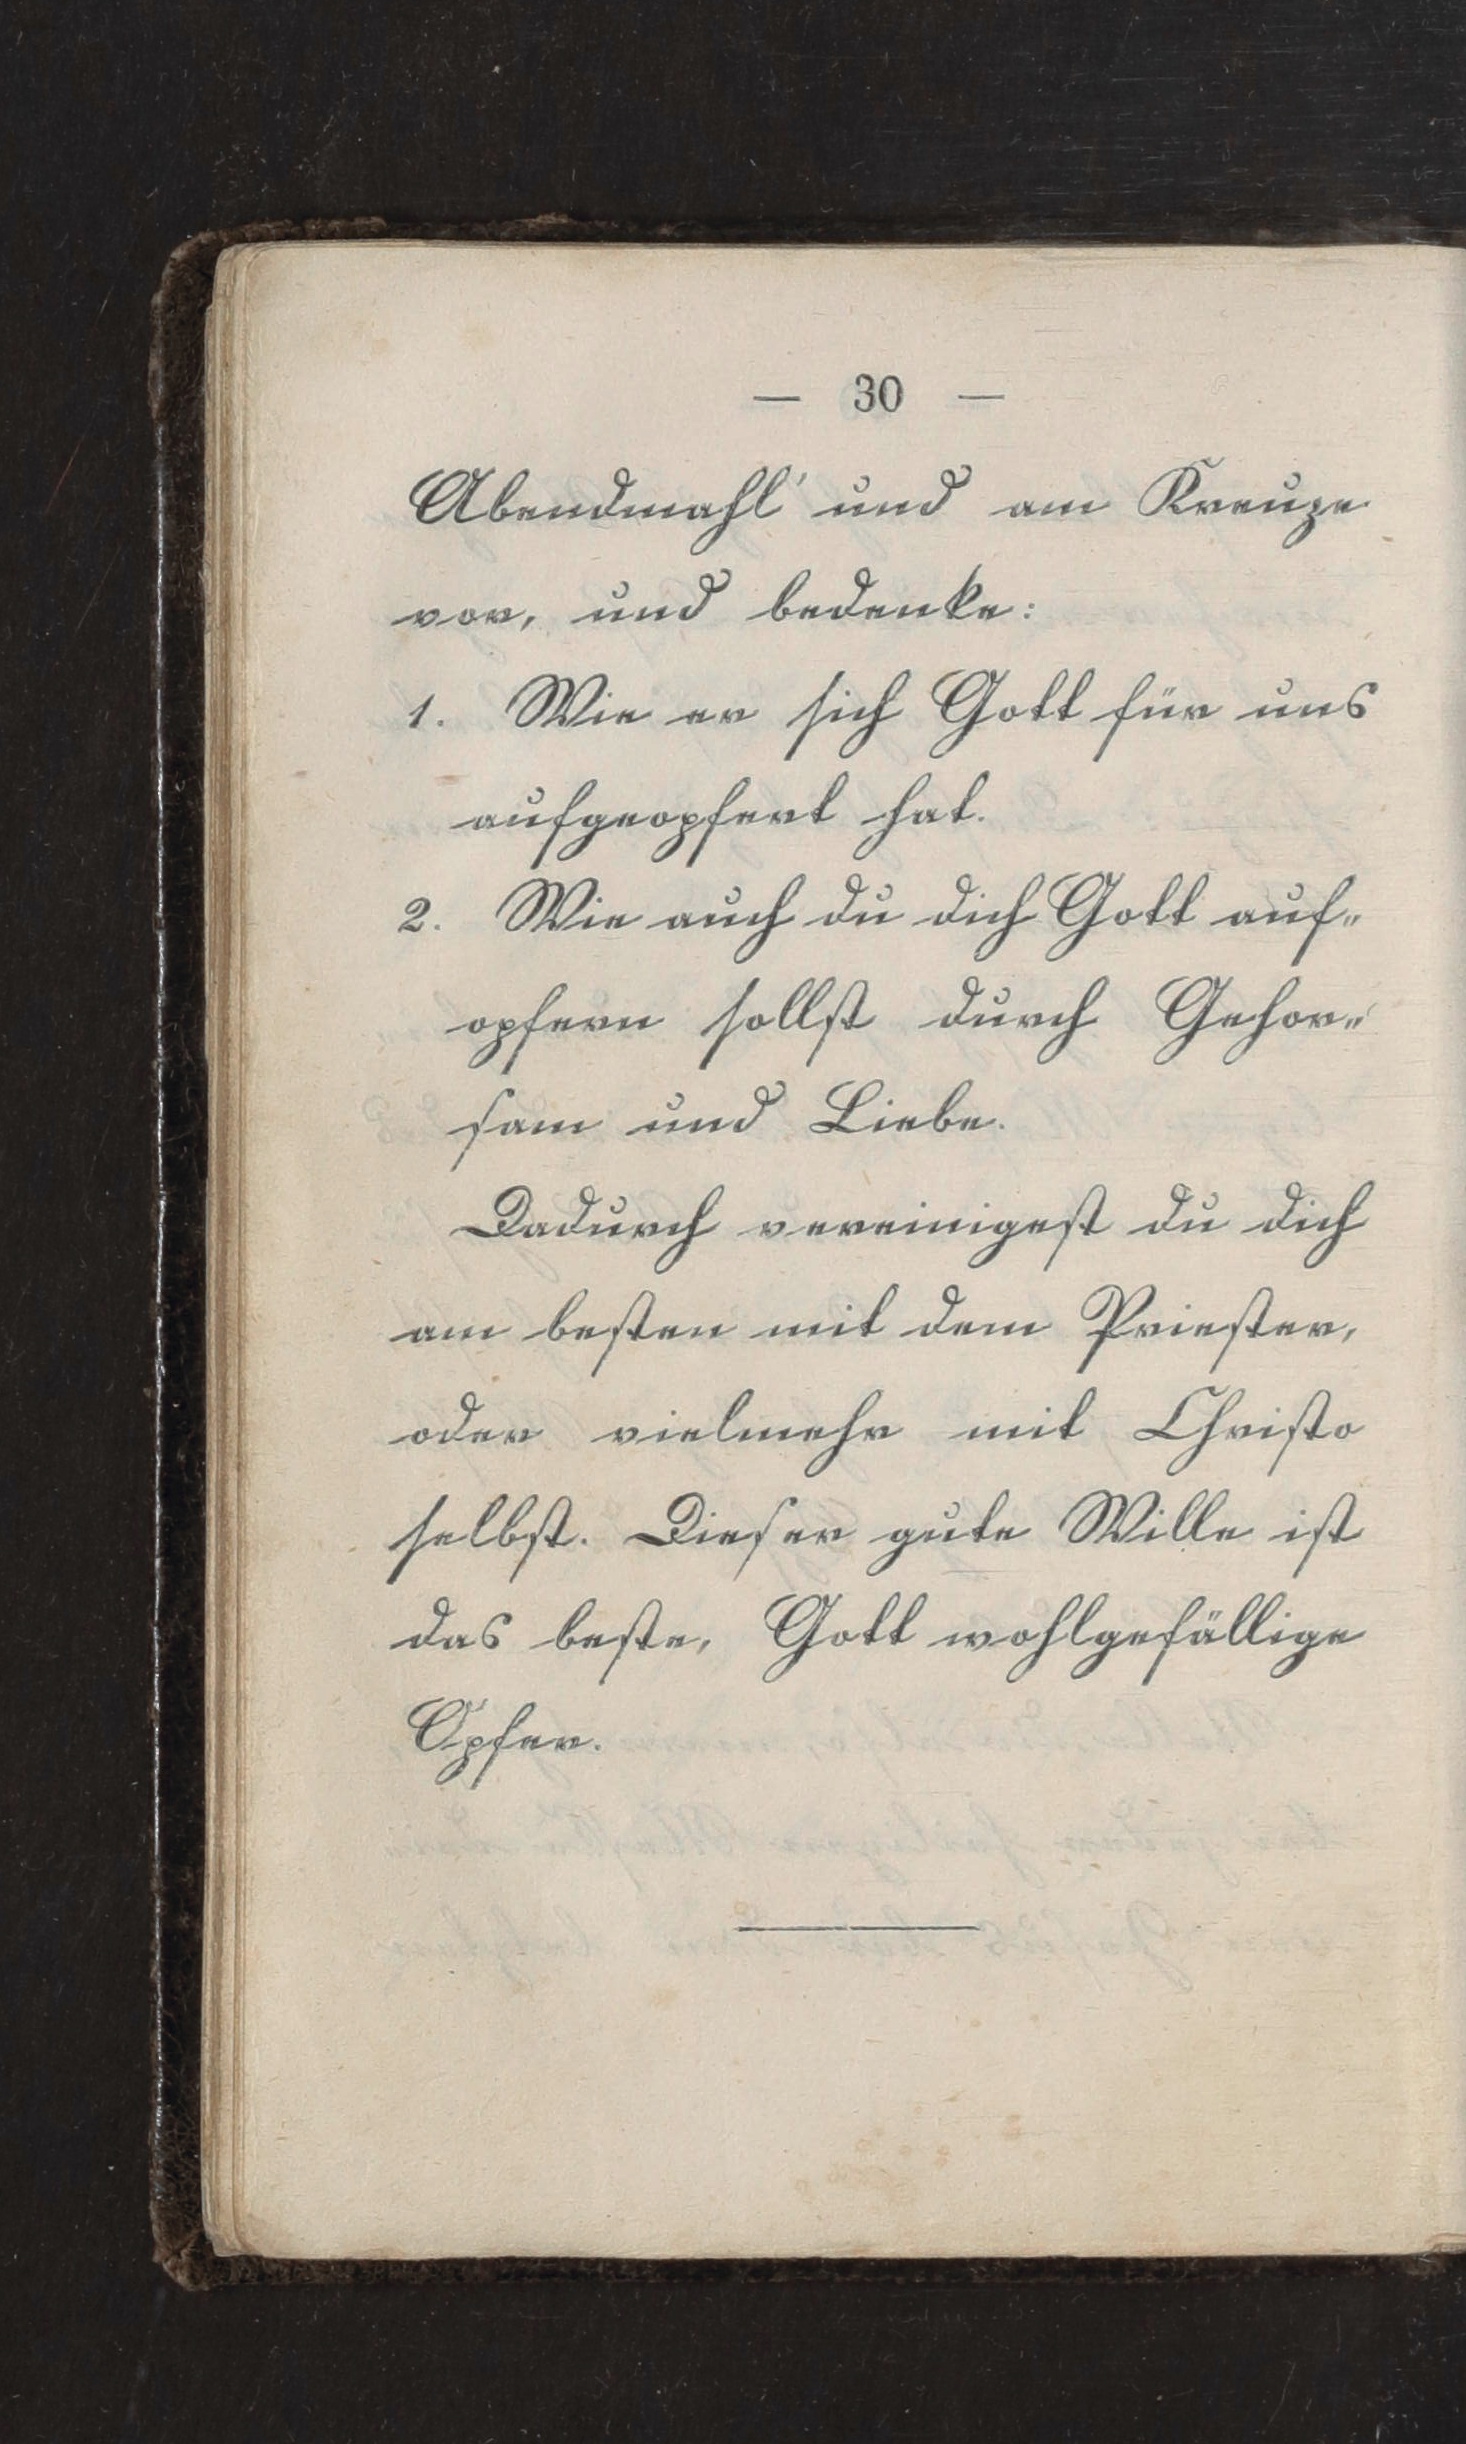 — 30 —
Abendmahl und am Kreuze
vor, und bedenke:
1. Wie er sich Gott für uns
aufgeopfert hat.
2. Wie auch du dich Gott auf-
opfern sollst durch Gehor-
sam und Liebe.
Dadurch vereinigest du dich
am besten mit dem Priester,
oder vielmehr mit Christo
selbst. Dieser gute Wille ist
das beste, Gott wohlgefällige
Opfer.